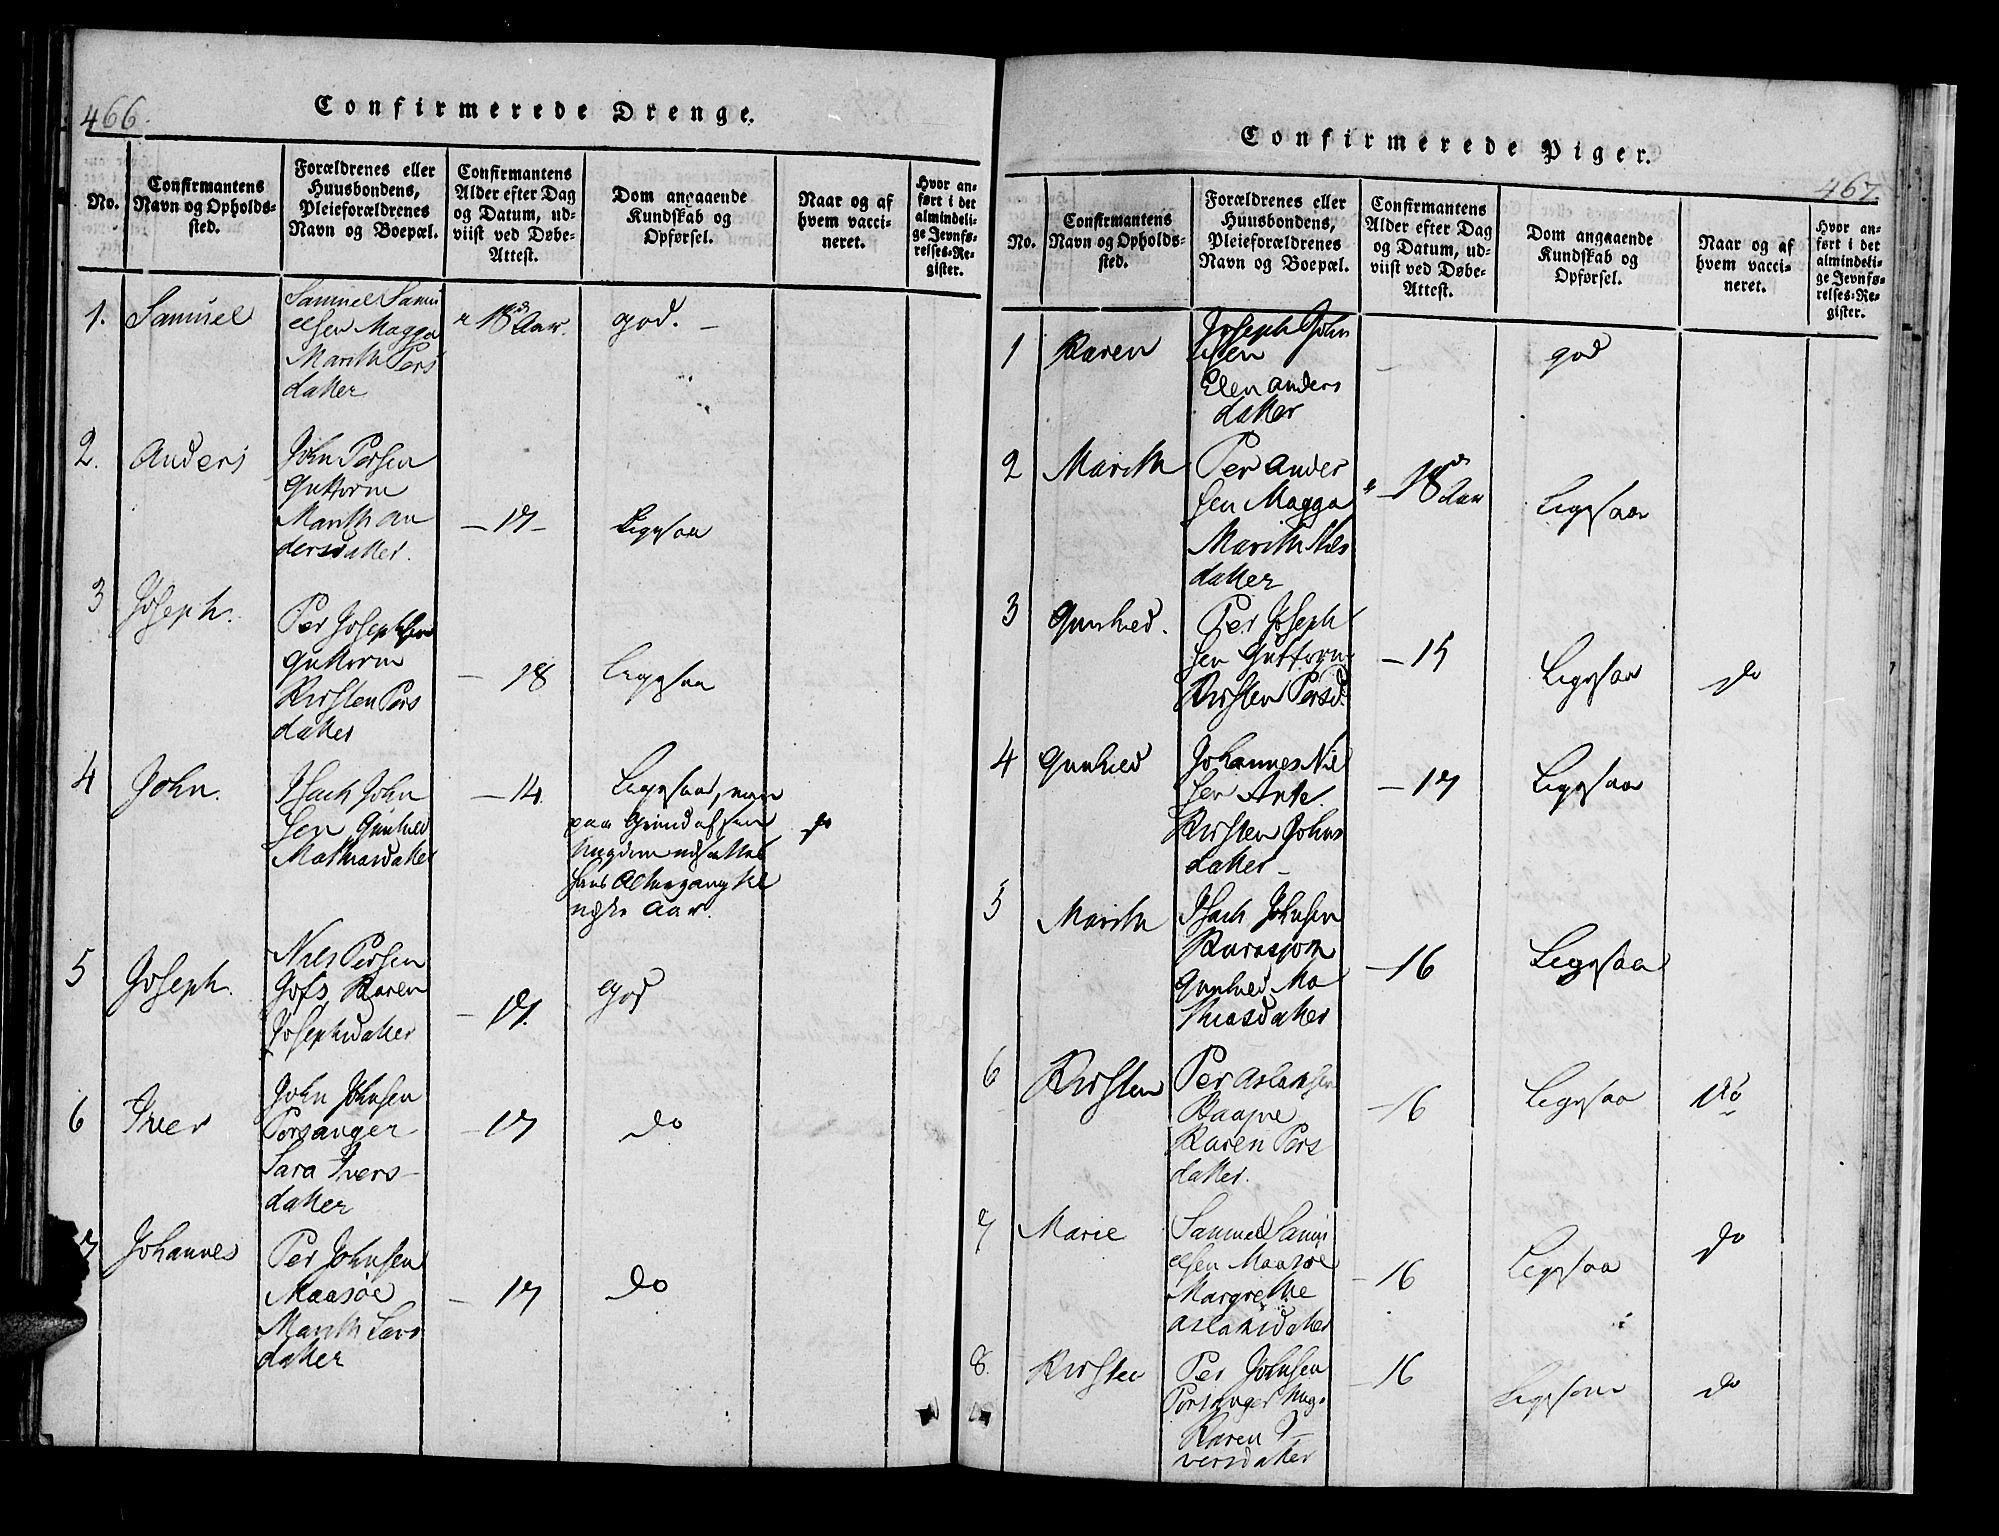 466.
Confirmerede Drenge.
No.
Confirmantens
Navn og Opholds-
sted.
Forældrenes eller
Huusbondens,
Pleieforældrenes
Navn og Boepæl.
Confirmantens
Alder efter Dag
og Datum, ud-
viist ved Døbe-
Attest.
Dom angaaende
Kundskab og
Opførsel.
Naar og af
hvem vacci-
neret.
Hvor an-
ført i det
almindeli-
ge Jevnfø-
relses-Re-
gister.
1. Samuel
Samuel Samu
elsen Magga
Marith Pers
datter
18 Aar.
god. –
2. Anders
John Persen
Guttorm
Marith An
dersdatter.
– 17 –
Ligesaa
3 Joseph.
Per Josephsen
Guttorm
Kirsten Pers
datter
– 18
Ligesaa
4 John.
Isach John
sen Gunhed
Mathiasdatter
– 14.
Ligesaa, men
paa Grund af sin
Ungdom udsættes
hans Altergang til
næste Aar.
do
5 Joseph.
Nils Persen
Karen
Josephsdatter
– 17.
god
6 Iver
John Johnsen
Porsanger
Sara Ivers-
datter
– 17
do
7 Johannes
Per Johnsen
Maasøe
Marith Lars
datter
– 17
do
467
Confirmerede Piger.
No.
Confirmantens
Navn og Opholds-
sted.
Forældrenes eller
Huusbondens,
Pleieforældrenes
Navn og Boepæl.
Confirmantens
Alder efter Dag
og Datum, ud-
viist ved Døbe-
Attest.
Dom angaaende
Kundskab og
Opførsel.
Naar og af
hvem vacci-
neret.
Hvor an-
ført i det
almindeli-
ge Jevnfø-
relses-Re-
gister.
1 Karen
Joseph John
sen
Elen Anders
datter
–
god
2 Marith
Per Ander
sen Magga
Marith Nils
datter
– 18 Aar
Ligesaa
3 Gunhed.
Per Joseph
sen Guttorm
Kirsten Persd.
– 15
Ligesaa
do
4 Gunhed
Johannes Nil
sen Ante.
Kirsten Johns
datter –
– 17
Ligesaa
5 Marith
Isach Johnsen
Karasjok
Gunhed Ma
thiasdatter
– 16
Ligesaa
6 Kirsten
Per Aslaksen
Karen Pers
datter.
– 16
Ligesaa
do
7 Marie
Samuel Samu
elsen Maasøe
Margrethe
Aslaksdatter
– 16
Ligesaa
do
8. Kirsten
Per Johnsen
Porsanger
Karen I–
versdatter
– 16
Ligesaa
do